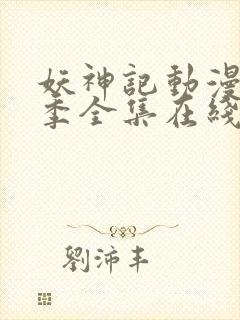 妖神記動漫
季全集在綫
劉沛丰